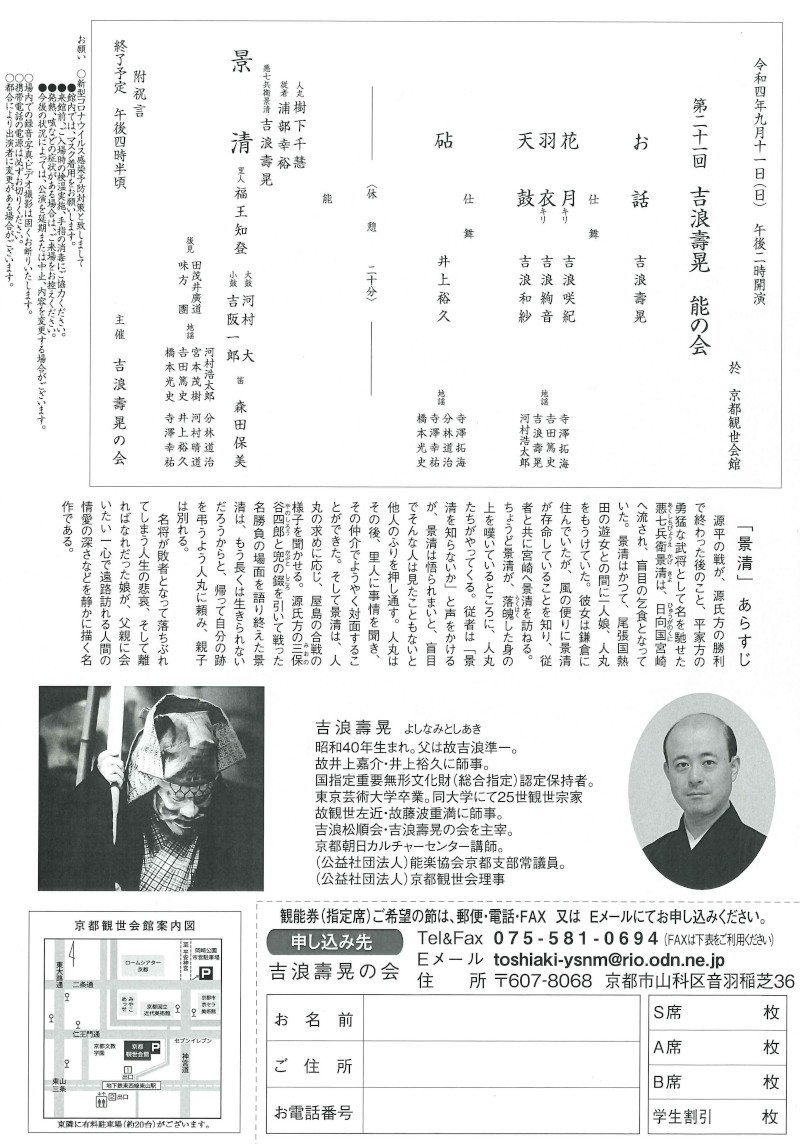 令和四年九月十一日（日）　午後二時開演
於　京都観世会館
第二十一回　吉浪壽晃　能の会
お話　吉浪壽晃
仕舞
花月キリ　吉浪咲紀
羽衣キリ　吉浪絢音
天鼓　吉浪和紗
地謡
寺澤拓海
吉田篤史
吉浪壽晃
河村浩太郎
仕舞
砧　井上裕久
地謡
寺澤拓海
分林道治
寺澤幸祐
橋本光史
（休憩　二十分）
能
景清
人丸　樹下千慧
従者　浦部幸裕
悪七兵衛景清　吉浪壽晃
里人　福王知登
大鼓　河村大
小鼓　吉阪一郎
笛　森田保美
後見
田茂井廣道
味方團
地謡
河村浩太郎　分林道治
宮本茂樹　河村晴道
吉田篤史　井上裕久
橋本光史　寺澤幸祐
附祝言
終了予定　午後四時半頃
主催　吉浪壽晃の会
お願い　○新型コロナウイルス感染予防対策と致しまして
●館内では、マスク着用をお願いします。
●来館前、ご入場時の検温実施、手指の消毒にご協力ください。
●発熱、咳などの症状がある場合は、ご来場をお控えください。
●今後の状況によっては、公演を延期または中止、内容を変更する場合がございます。
○場内での録音・写真・ビデオ撮影は固くお断りいたします。
○携帯電話の電源は必ずお切りください。
○都合により出演者に変更がある場合がございます。
「景清」あらすじ
源平の戦が、源氏方の勝利
で終わった後のこと、平家方の
勇猛な武将として名を馳せた
悪七兵衛景清は、日向国宮崎
へ流され、盲目の乞食となって
いた。景清はかつて、尾張国熱
田の遊女との間に一人娘、人丸
をもうけていた。彼女は鎌倉に
住んでいたが、風の便りに景清
が存命していることを知り、従
者と共に宮崎へ景清を訪ねる。
ちょうど景清が、落魄した身の
上を嘆いているところに、人丸
たちがやってくる。従者は「景
清を知らないか」と声をかける
が、景清は悟られまいと、盲目
でそんな人は見たこともないと
他人のふりを押し通す。人丸は
その後、里人に事情を聞き、
その仲介でようやく対面するこ
とができた。そして景清は、人
丸の求めに応じ、屋島の合戦の
様子を聞かせる。源氏方の三保
谷四郎と兜の錣を引いて戦った
名勝負の場面を語り終えた景
清は、もう長くは生きられない
だろうからと、帰って自分の跡
を弔うよう人丸に頼み、親子
は別れる。
名将が敗者となって落ちぶれ
てしまう人生の悲哀、そして離
ればなれだった娘が、父親に会
いたい一心で遠路訪れる人間の
情愛の深さなどを静かに描く名
作である。
吉浪壽晃　よしなみとしあき
昭和40年生まれ。父は故吉浪準一。
故井上嘉介・井上裕久に師事。
国指定重要無形文化財（総合指定）認定保持者。
東京芸術大学卒業。同大学にて25世観世宗家
故観世左近・故藤波重満に師事。
吉浪松順会・吉浪壽晃の会を主宰。
京都朝日カルチャーセンター講師。
（公益社団法人）能楽協会京都支部常議員。
（公益社団法人）京都観世会理事
京都観世会館案内図
東大路通
ロームシアター京都
至平安神宮
岡崎公園市営駐車場
P
二条通
みやこめっせ
京都国立近代美術館
京都市京セラ美術館
仁王門通
京都文教学園
京都観世会館 P
セブンイレブン
神宮道
1出口
地下鉄東西線東山駅
東山三条
2出口
東隣に有料駐車場（約20台）がございます。
観能券（指定席）ご希望の節は、郵便・電話・FAX　又は　Eメールにてお申し込みください。
申し込み先
吉浪壽晃の会
Tel&Fax　075-581-0694（FAXは下表をご利用ください）
Eメール　toshiaki-ysnm@rio.odn.ne.jp
住所　〒607-8068　京都市山科区音羽稲芝36
お名前
ご住所
お電話番号
S席　枚
A席　枚
B席　枚
学生割引　枚